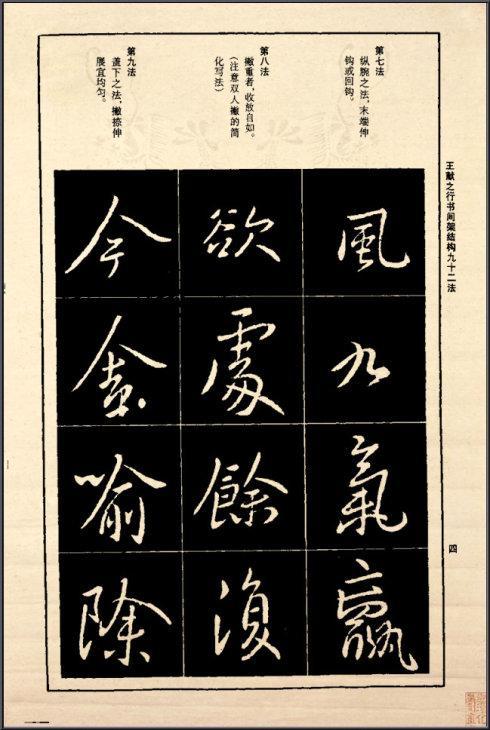 王献之行书间架结构九十二法
第七法
纵腕之法，末端伸
钩或回钩。
風
九
氣
羸
第八法
撇重者，收放自如。
（注意双人撇的简
化写法）
欲
處
餘
復
第九法
盖下之法，撇捺伸
展宜均匀。
今
喻
除
四